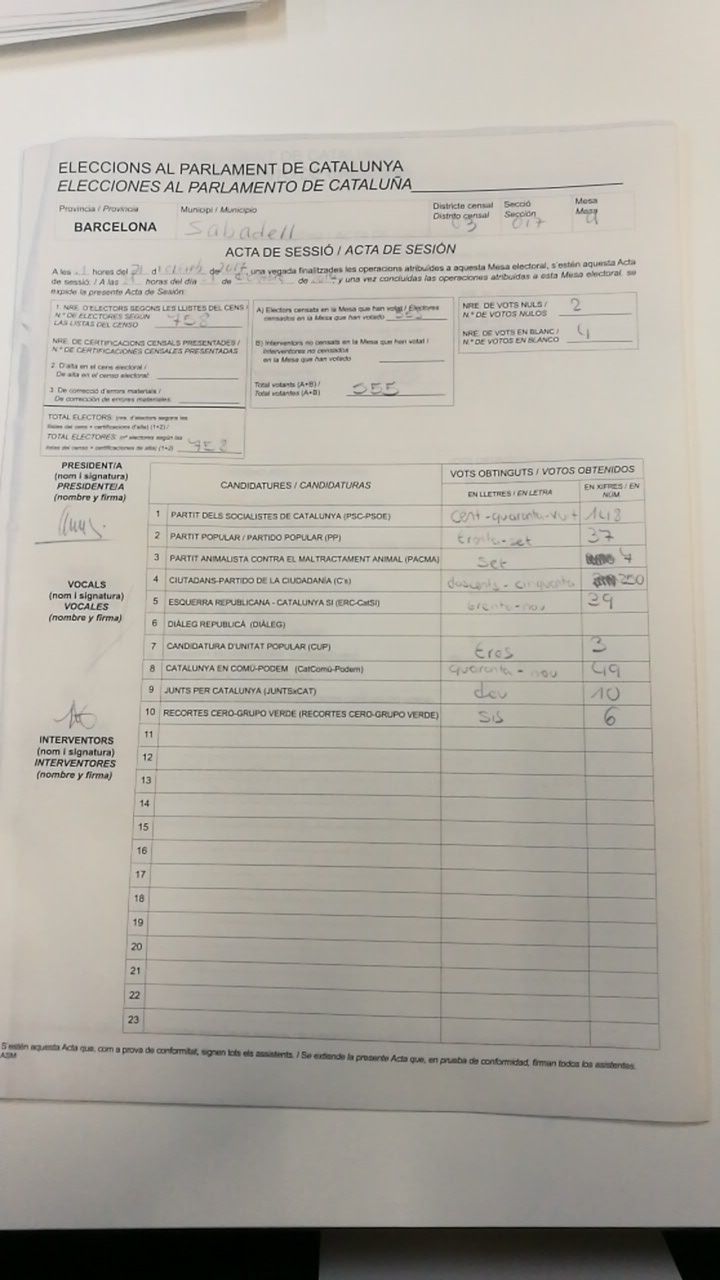 ELECCIONS AL PARLAMENT DE CATALUNYA
ELECCIONES AL PARLAMENTO DE CATALUÑA
Provincia / Provincia Municipi / Municipio Districte censal Secció Mesa
Distrito censal Sección Mesa
BARCELONA Sabadell 03 017 U
ACTA DE SESSIÓ / ACTA DE SESIÓN
A les hores del 21 d de 2017, una vegada finalitzades les operacions atribuïdes a aquesta Mesa electoral, s'estén aquesta Acta
de sessió. / A las horas del día de de y una vez concluidas las operaciones atribuidas a esta Mesa electoral, se
expide la presente Acta de Sesión:
1. NRE. D'ELECTORS SEGONS LES LLISTES DEL CENS /
N.º DE ELECTORES SEGÚN
LAS LISTAS DEL CENSO 758
NRE. DE CERTIFICACIONS CENSALS PRESENTADES /
N.º DE CERTIFICACIONES CENSALES PRESENTADAS
2. D'alta en el cens electoral /
De alta en el censo electoral:
3. De correcció d'errors materials /
De corrección de errores materiales:
TOTAL ELECTORS: (nre. d'electors segons les
llistes del cens + certificacions d'alta) (1+2) /
TOTAL ELECTORES: (nº electores según las
listas del censo + certificaciones de alta) (1+2) 758
A) Electors censats en la Mesa que han votat / Electores
censados en la Mesa que han votado 555
B) Interventors no censats en la Mesa que han votat /
Interventores no censados
en la Mesa que han votado
Total votants (A+B) /
Total votantes (A+B) 555
NRE. DE VOTS NULS / 2
N.º DE VOTOS NULOS
NRE. DE VOTS EN BLANC / 4
N.º DE VOTOS EN BLANCO
PRESIDENT/A
(nom i signatura)
PRESIDENTE/A
(nombre y firma)
VOCALS
(nom i signatura)
VOCALES
(nombre y firma)
INTERVENTORS
(nom i signatura)
INTERVENTORES
(nombre y firma)
CANDIDATURES / CANDIDATURAS VOTS OBTINGUTS / VOTOS OBTENIDOS
EN LLETRES / EN LETRA EN XIFRES / EN NÚM
1 PARTIT DELS SOCIALISTES DE CATALUNYA (PSC-PSOE) Cent-quaranta-vuit 148
2 PARTIT POPULAR / PARTIDO POPULAR (PP) trenta-set 37
3 PARTIT ANIMALISTA CONTRA EL MALTRACTAMENT ANIMAL (PACMA) Set 7
4 CIUTADANS-PARTIDO DE LA CIUDADANÍA (C's) doscents-cinquanta 250
5 ESQUERRA REPUBLICANA - CATALUNYA SÍ (ERC-CatSí) trenta-nou 39
6 DIÀLEG REPUBLICÀ (DIÀLEG)
7 CANDIDATURA D'UNITAT POPULAR (CUP) tres 3
8 CATALUNYA EN COMÚ-PODEM (CatComú-Podem) quaranta-nou 49
9 JUNTS PER CATALUNYA (JUNTSxCAT) deu 10
10 RECORTES CERO-GRUPO VERDE (RECORTES CERO-GRUPO VERDE) Sis 6
11
12
13
14
15
16
17
18
19
20
21
22
23
S'estén aquesta Acta que, com a prova de conformitat, signen tots els assistents. / Se extiende la presente Acta que, en prueba de conformidad, firman todos los asistentes.
ASM